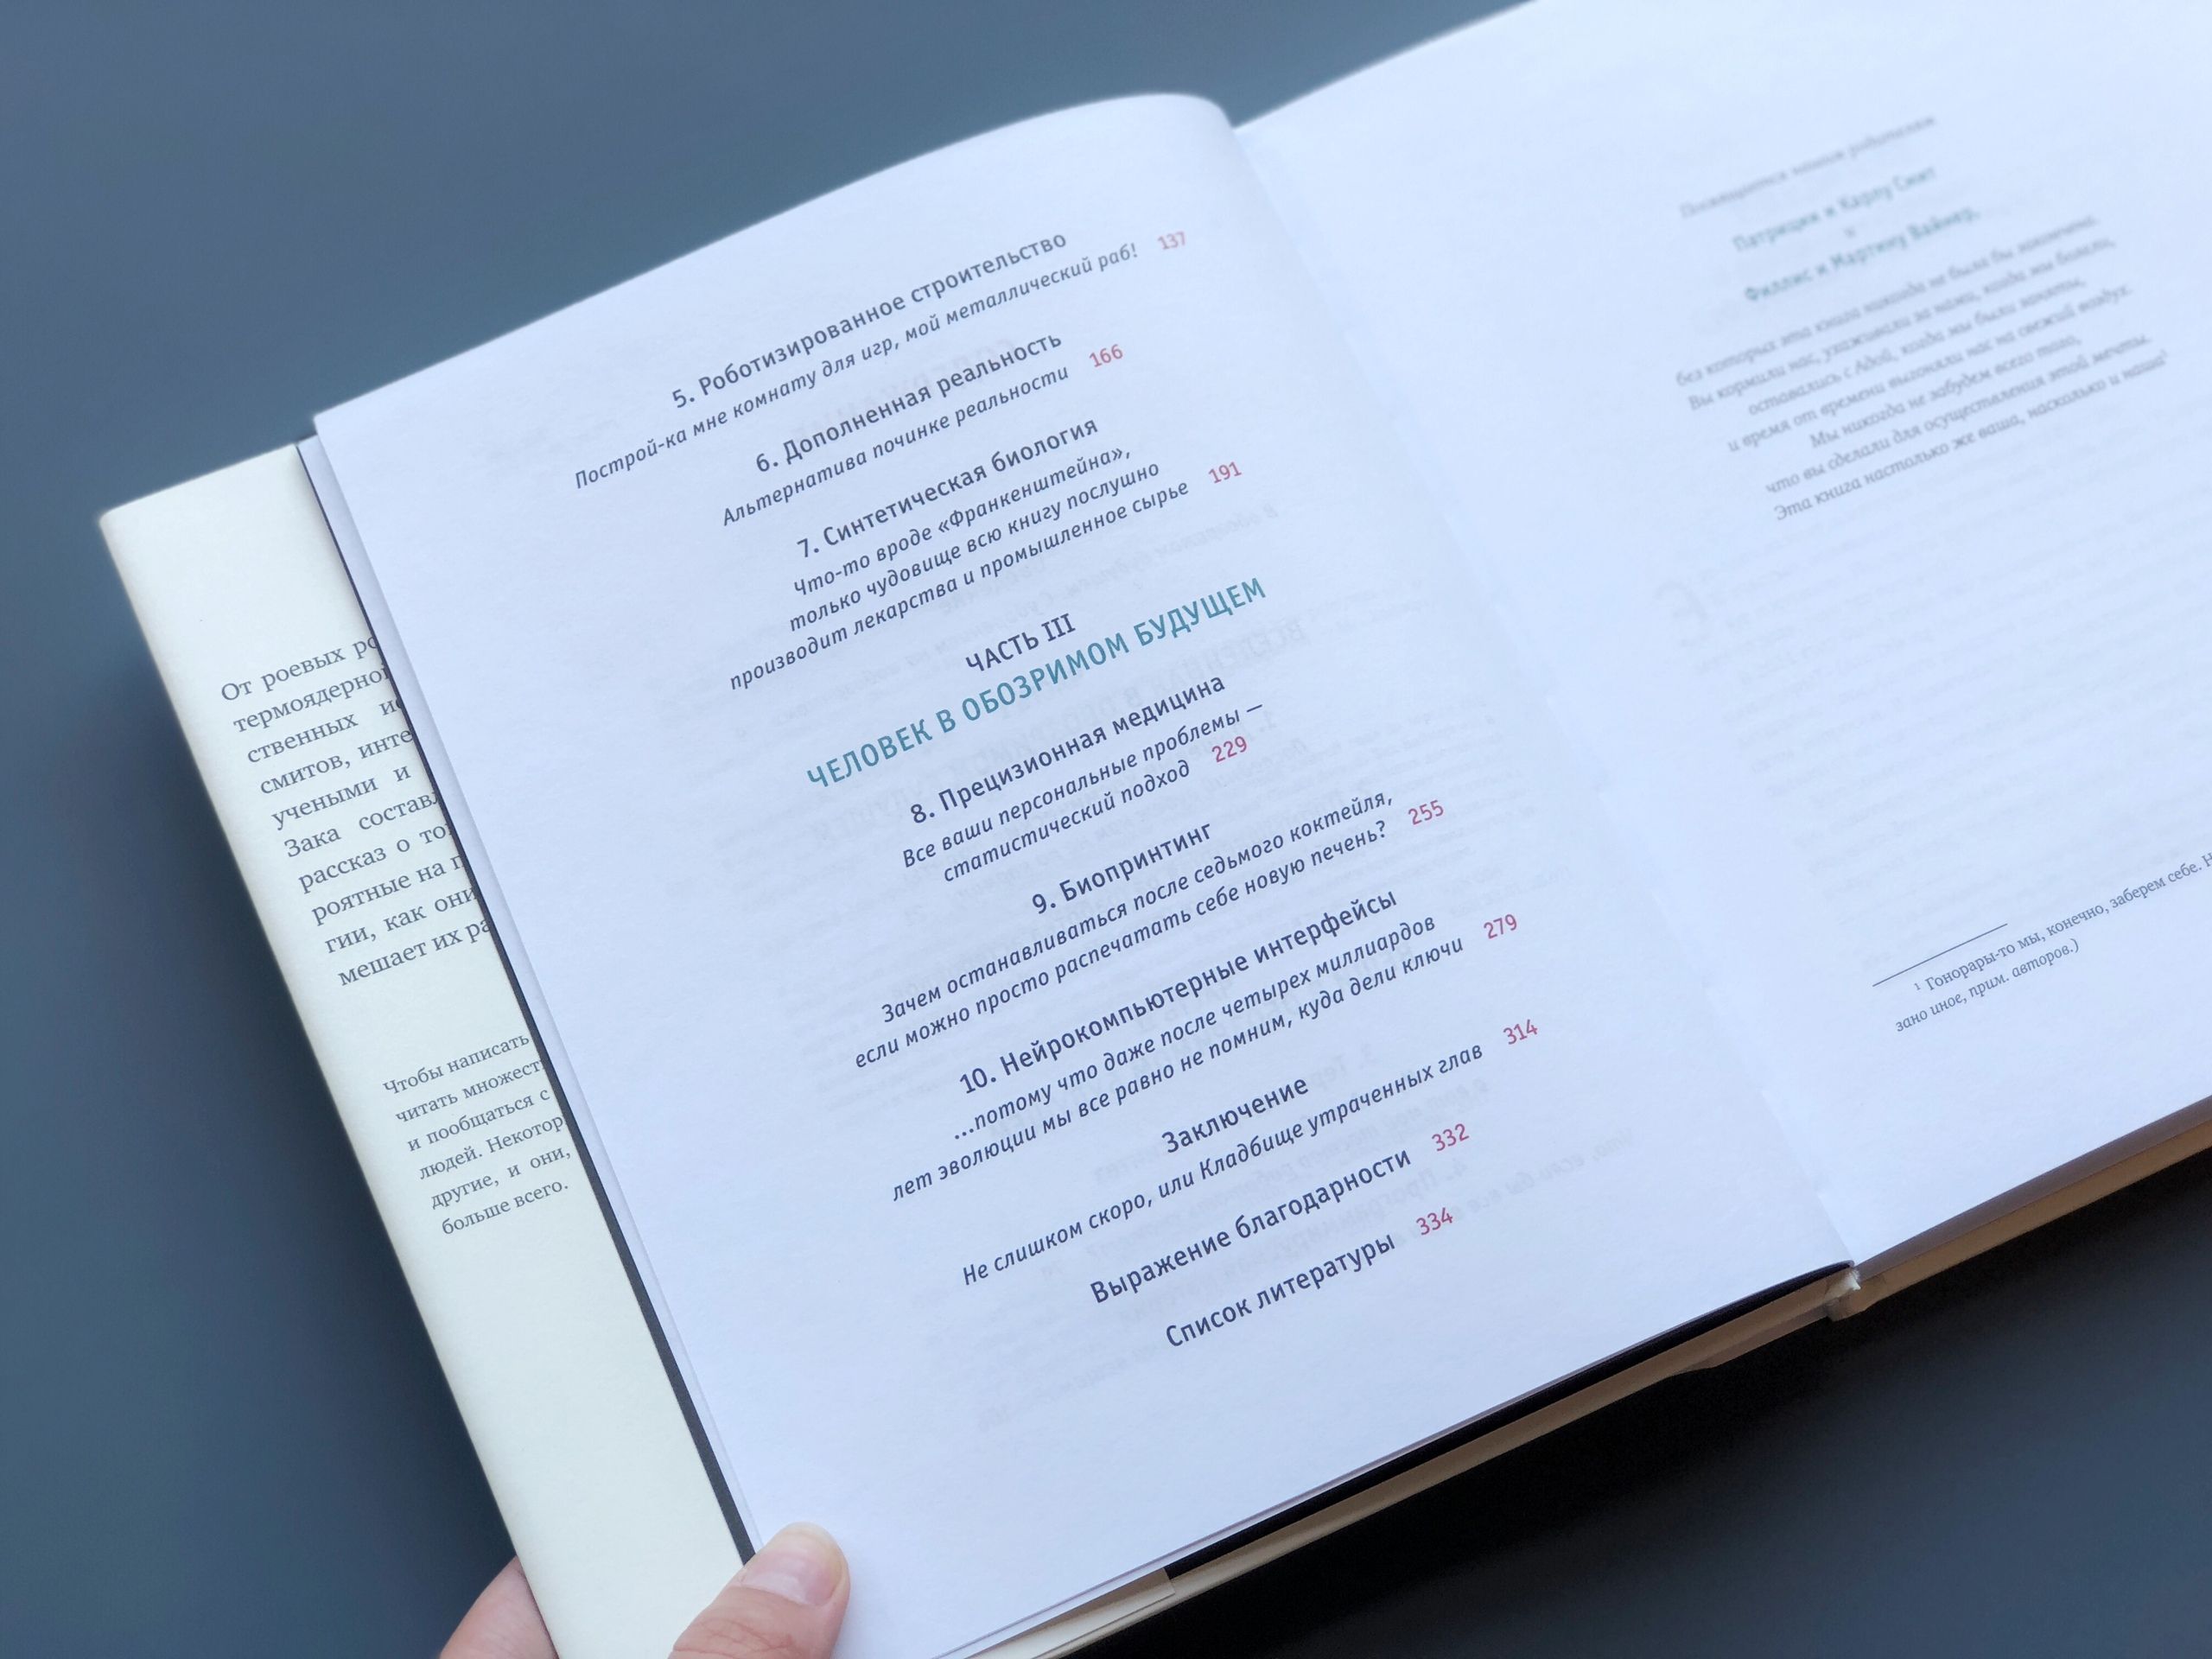 От роевых ро
термоядерной
ственных ис
смитов, инте
учеными и
Зака составл
рассказ о том
роятные на п
гии, как они
мешает их ра
Чтобы написать
читать множест
и пообщаться с
людей. Некотор
другие, и они,
больше всего.
5. Роботизированное строительство
Построй-ка мне комнату для игр, мой металлический раб! 137
6. Дополненная реальность
Альтернатива починке реальности 166
7. Синтетическая биология
Что-то вроде «Франкенштейна»,
только чудовище всю книгу послушно
производит лекарства и промышленное сырье 191
ЧАСТЬ III
ЧЕЛОВЕК В ОБОЗРИМОМ БУДУЩЕМ
8. Прецизионная медицина
Все ваши персональные проблемы —
статистический подход 229
9. Биопринтинг
Зачем останавливаться после седьмого коктейля,
если можно просто распечатать себе новую печень? 255
10. Нейрокомпьютерные интерфейсы
...потому что даже после четырех миллиардов
лет эволюции мы все равно не помним, куда дели ключи 279
Заключение
Не слишком скоро, или Кладбище утраченных глав 314
Выражение благодарности 332
Список литературы 334
Посвящается нашим родителям
Патриции и Карлу Смит
и
Филлис и Мартину Вайнер,
без которых эта книга никогда не была бы закончена.
Вы кормили нас, ухаживали за нами, когда мы болели,
оставались с Адой, когда мы были заняты,
и время от времени выгоняли нас на свежий воздух.
Мы никогда не забудем всего того,
что вы сделали для осуществления этой мечты.
Эта книга настолько же ваша, насколько и наша¹
¹ Гонорары-то мы, конечно, заберем себе. Н
зано иное, прим. авторов.)